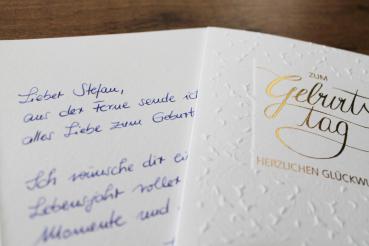 Lieber Stefan,
aus der Ferne sende
alles Liebe zum
Ich wünsche dir
Lebensjahr voller
Momente und
ZUM
tag
HERZLICHEN